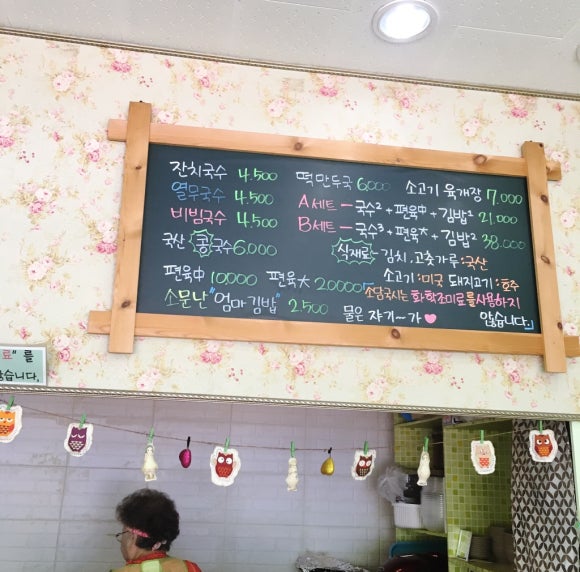 잔치국수 4,500
열무국수 4,500
비빔국수 4,500
국산 콩국수 6,000
편육中 10,000 편육大 20000
소문난 "엄마김밥" 2,500
떡만두국 6,000 소고기 육개장 7,000
A세트 - 국수² + 편육中 + 김밥¹ 21,000
B세트 - 국수³ + 편육大 + 김밥² 38,000
식재료 - 김치, 고춧가루:국산
소고기:미국 돼지고기:호주
소담국시는 화학조미료를사용하지
않습니다.
물은 자기~가
료" 를
않습니다.